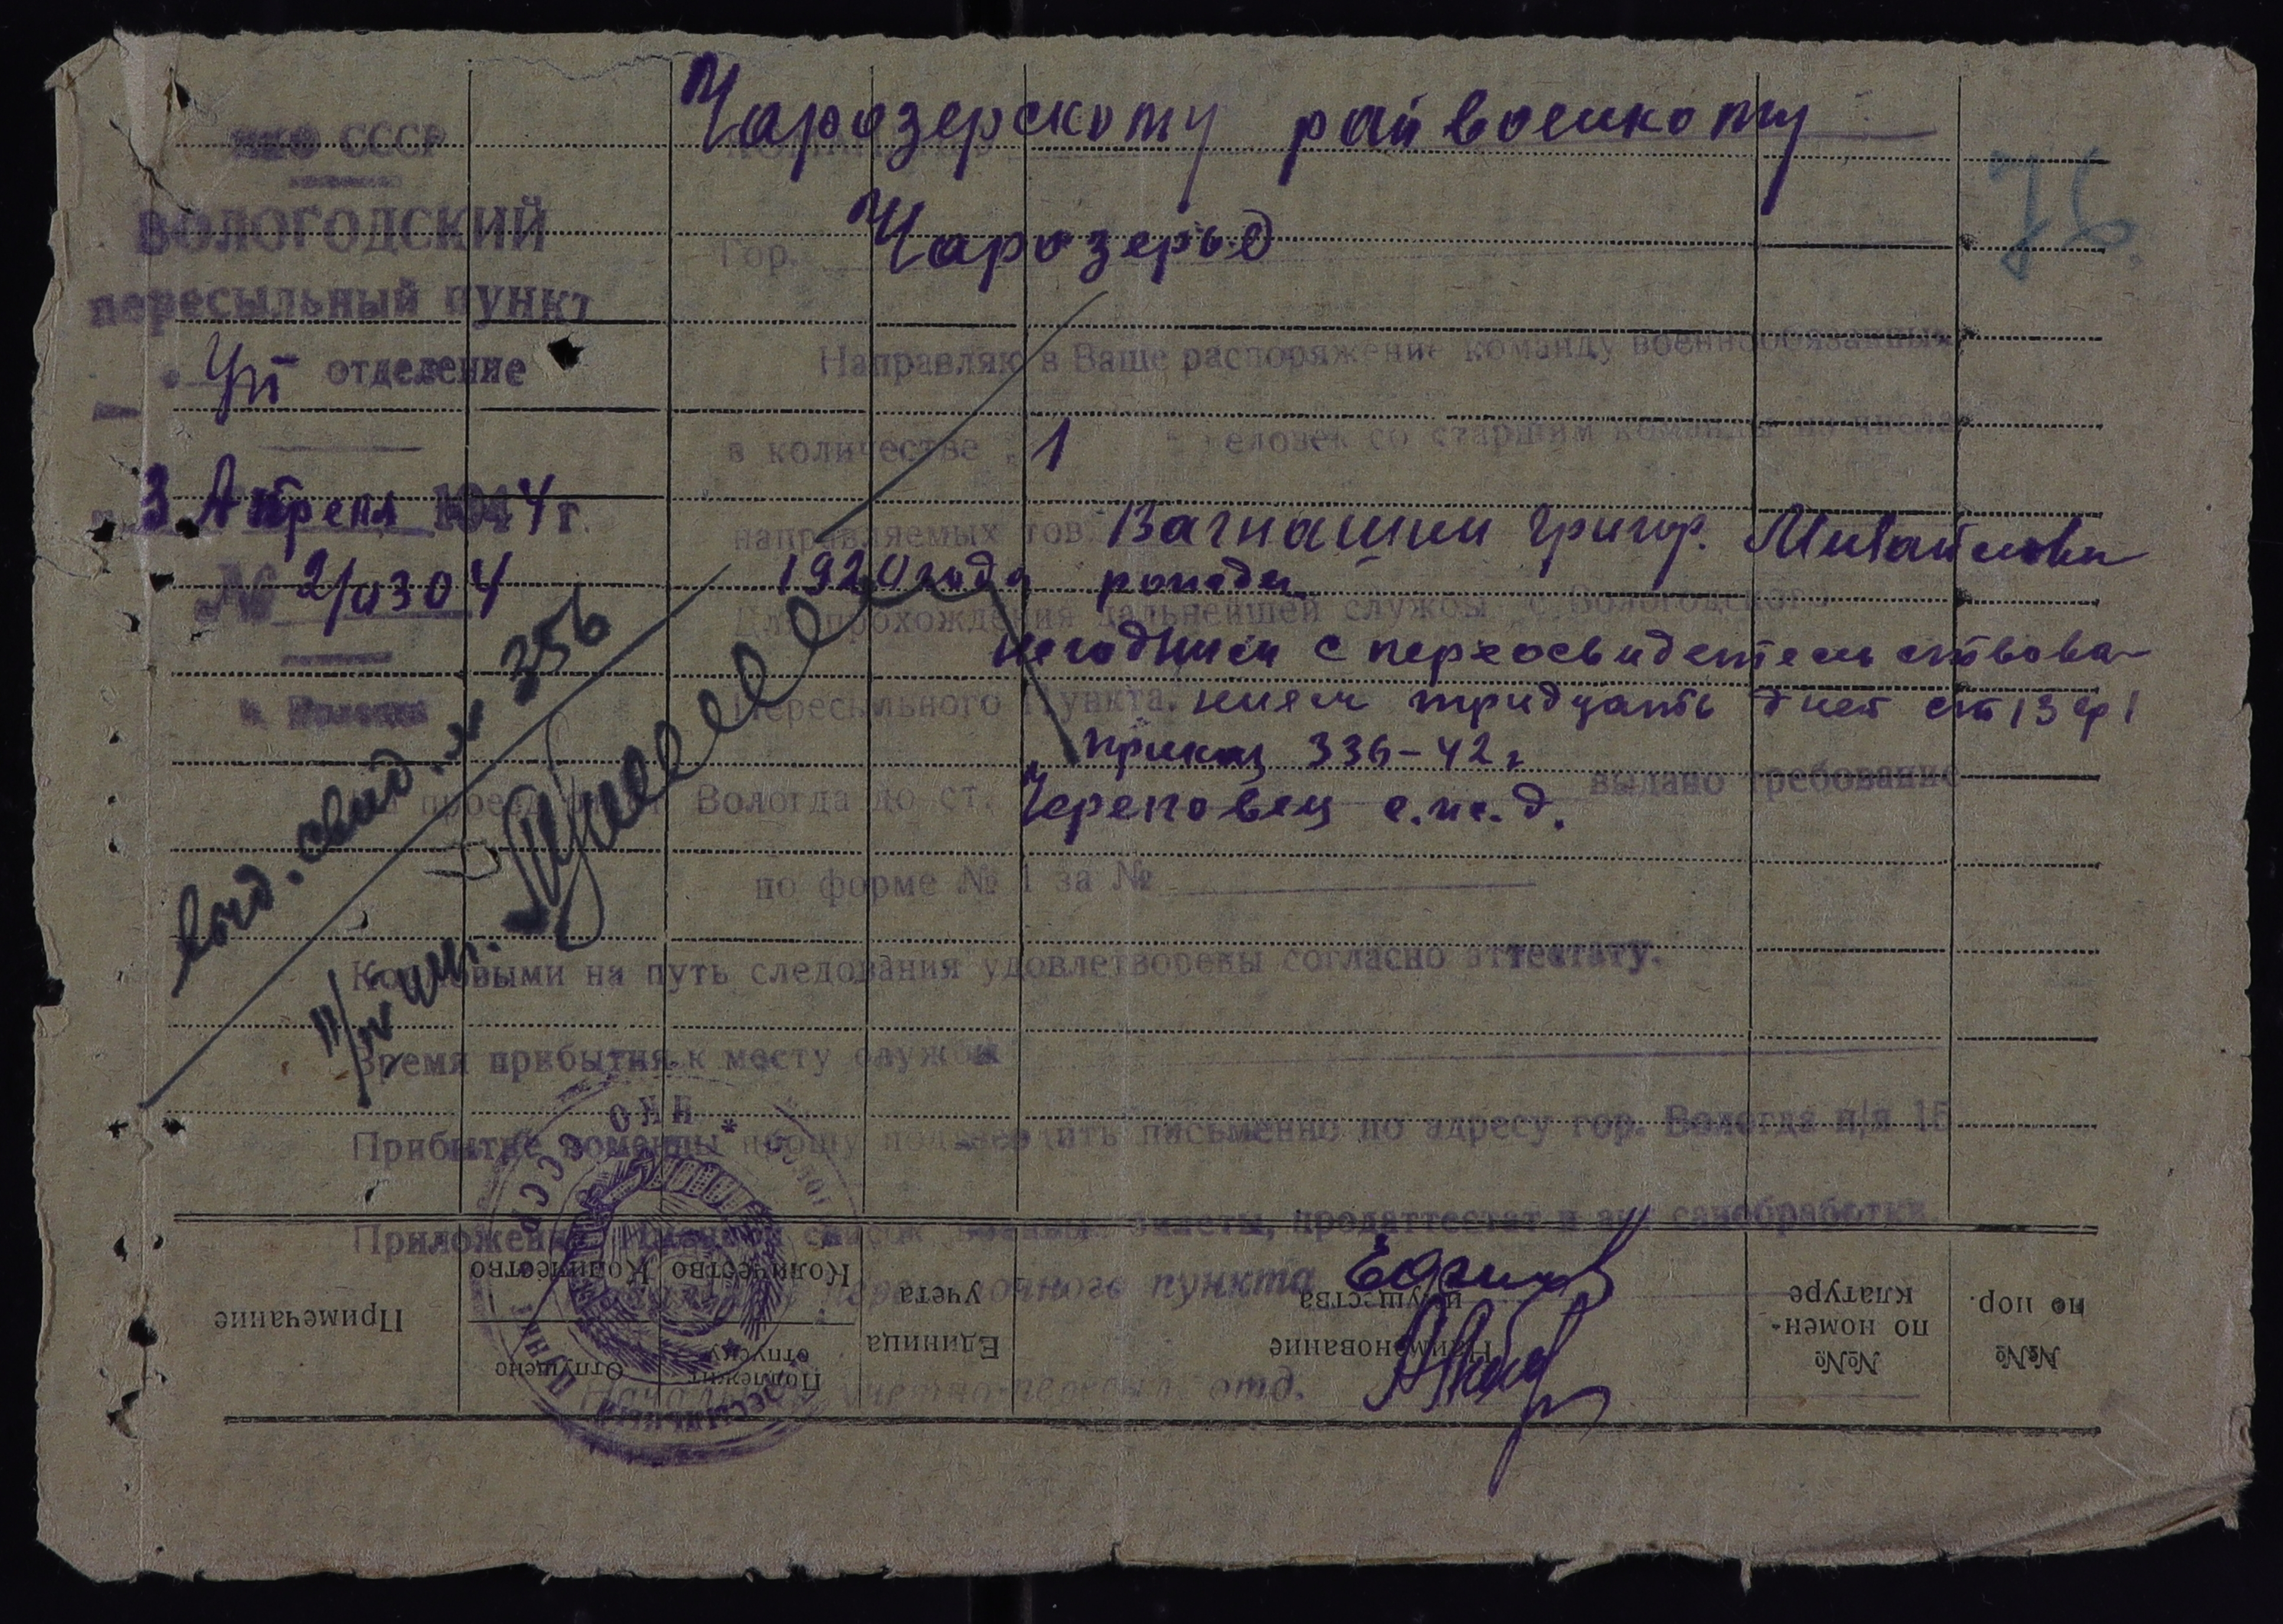 Чарозерскому райвоенкому
75.
НКО СССР
ВОЛОГОДСКИЙ
Гор. Чарозеро
пересыльный пункт
Направляю в Ваше распоряжение команду военнообязанных
отделение
в количестве 1 человек со старшим команды из числа
3 Апреля 1944 г.
направляемых тов. Вагнашин Григор. Михайлович
№ 2/0304
1920 года рожден
Для прохождения дальнейшей службы с Вологодского
негодным с переосвидетельствова-
г. Вологда
Пересыльного Пункта. нием тридцать дней ст 13 гр 1
приказ 336-42 г
На проезд от ст. Вологда до ст. Череповец с.ж.д. выдано требование
по форме № 1 за №
выд. свид. № 356
Кормовыми на путь следования удовлетворены согласно аттестату.
Время прибытия к месту службы
Прибытие команды прошу подтвердить письменно по адресу гор. Вологда п/я 15
Приложение: Именной список, военные билеты, продаттестат и акт санобработки.
Начальник пересылочного пункта
Начальник учетно-персыл. отд.
НКО СССР
№№ по пор.
№№ по номен-
клатуре
Наименование
имущества
Единица
учета
Подлежит
отпуску
Количество
Отпущено
Количество
Примечание